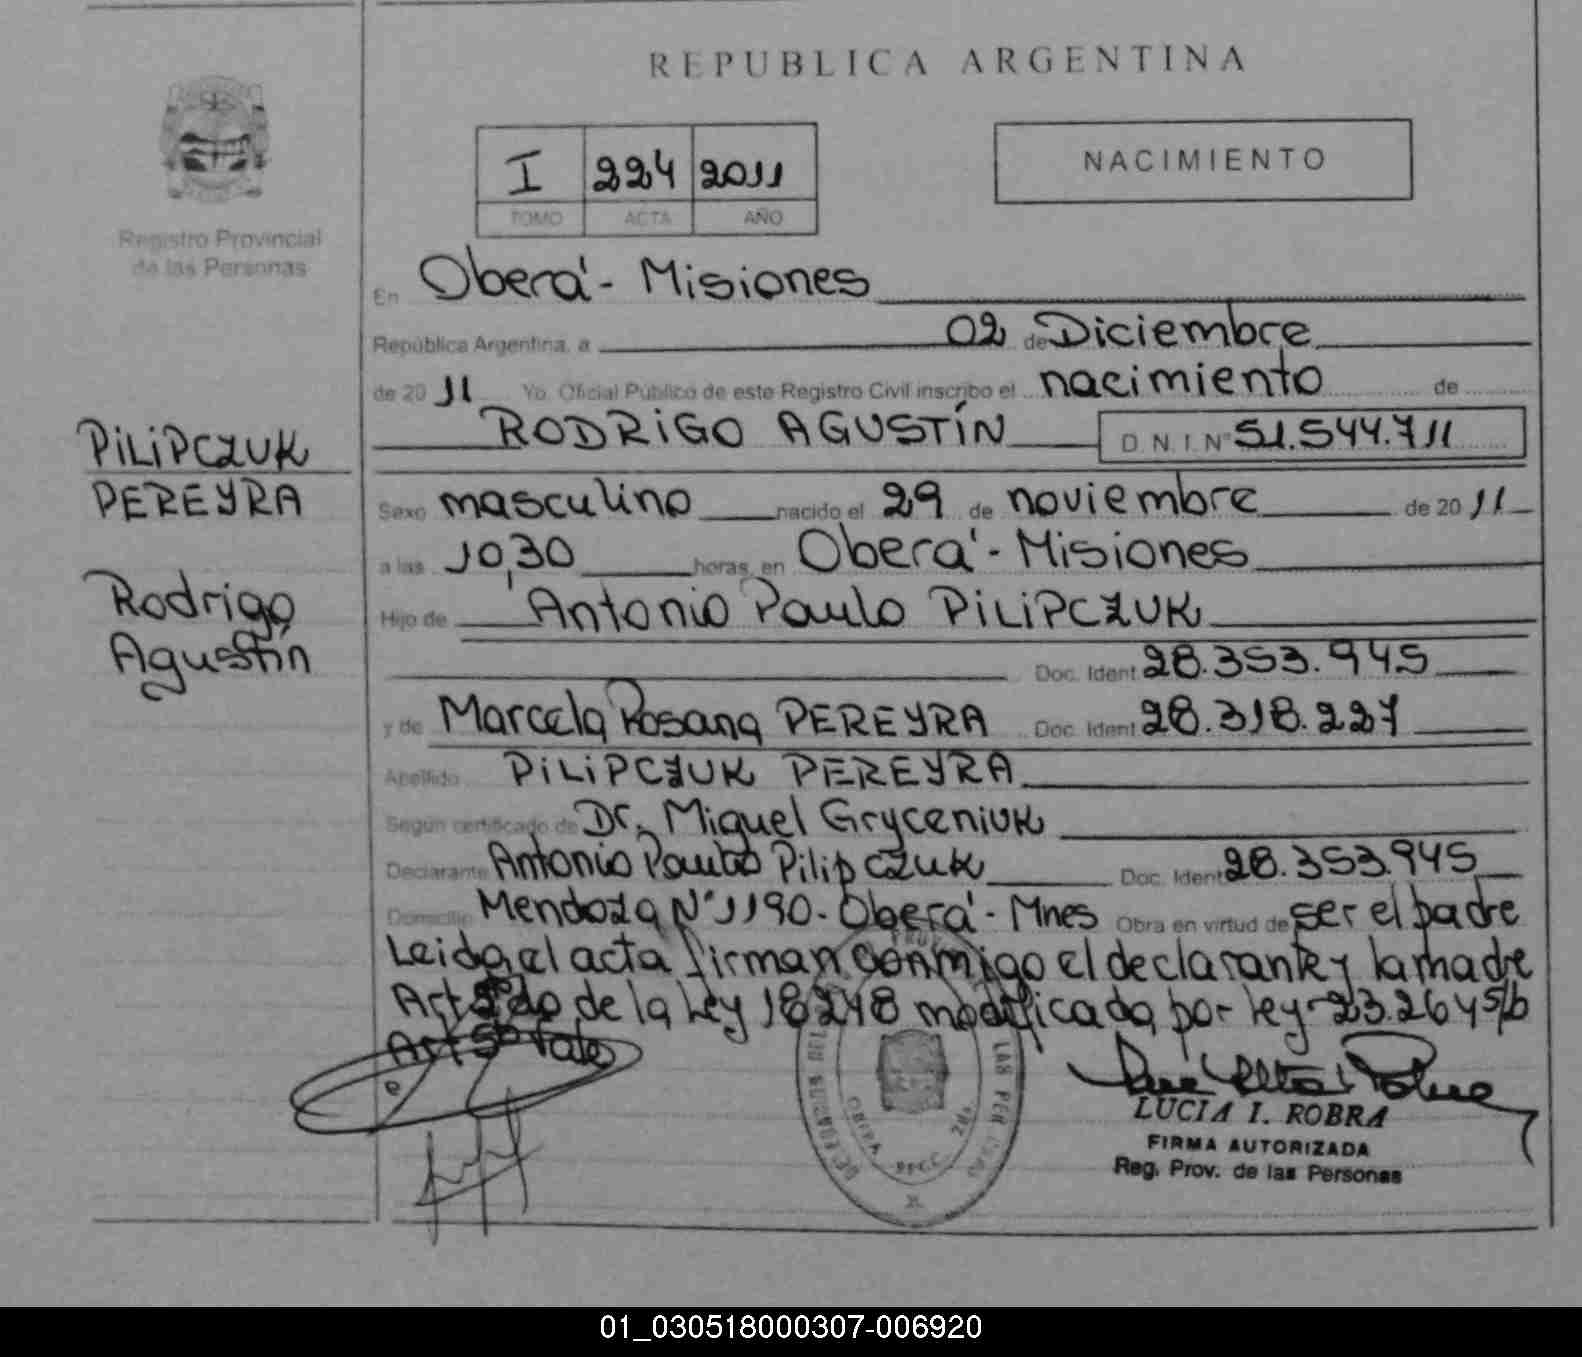 REPUBLICA ARGENTINA
I 224 2011
TOMO ACTA AÑO
NACIMIENTO
Registro Provincial
de las Personas
En Oberá - Misiones
República Argentina, a 02 de Diciembre
de 2011 Yo, Oficial Público de este Registro Civil inscribo el nacimiento de
RODRIGO AGUSTÍN D.N.I. N° 51.544.711
PILIPCZUK
PEREYRA
Rodrigo
Agustín
Sexo masculino nacido el 29 de noviembre de 2011
a las 10,30 horas, en Oberá - Misiones
Hijo de Antonio Paulo PILIPCZUK
Doc. Ident. 28.353.945
y de Marcela Rosana PEREYRA Doc. Ident. 28.318.227
Apellido PILIPCZUK PEREYRA
Según certificado de Dr. Miguel Gryceniuk
Declarante Antonio Paulo Pilipczuk Doc. Ident. 28.353.945
Domicilio Mendoza N° 1190 - Oberá - Mnes Obra en virtud de ser el padre
Leida el acta firman conmigo el declarante y la madre
de la Ley 18248 modificada por ley 23.264 s/b
Art 5° Vale
LAS PER
LUCIA I. ROBRA
FIRMA AUTORIZADA
Reg. Prov. de las Personas
01_030518000307-006920